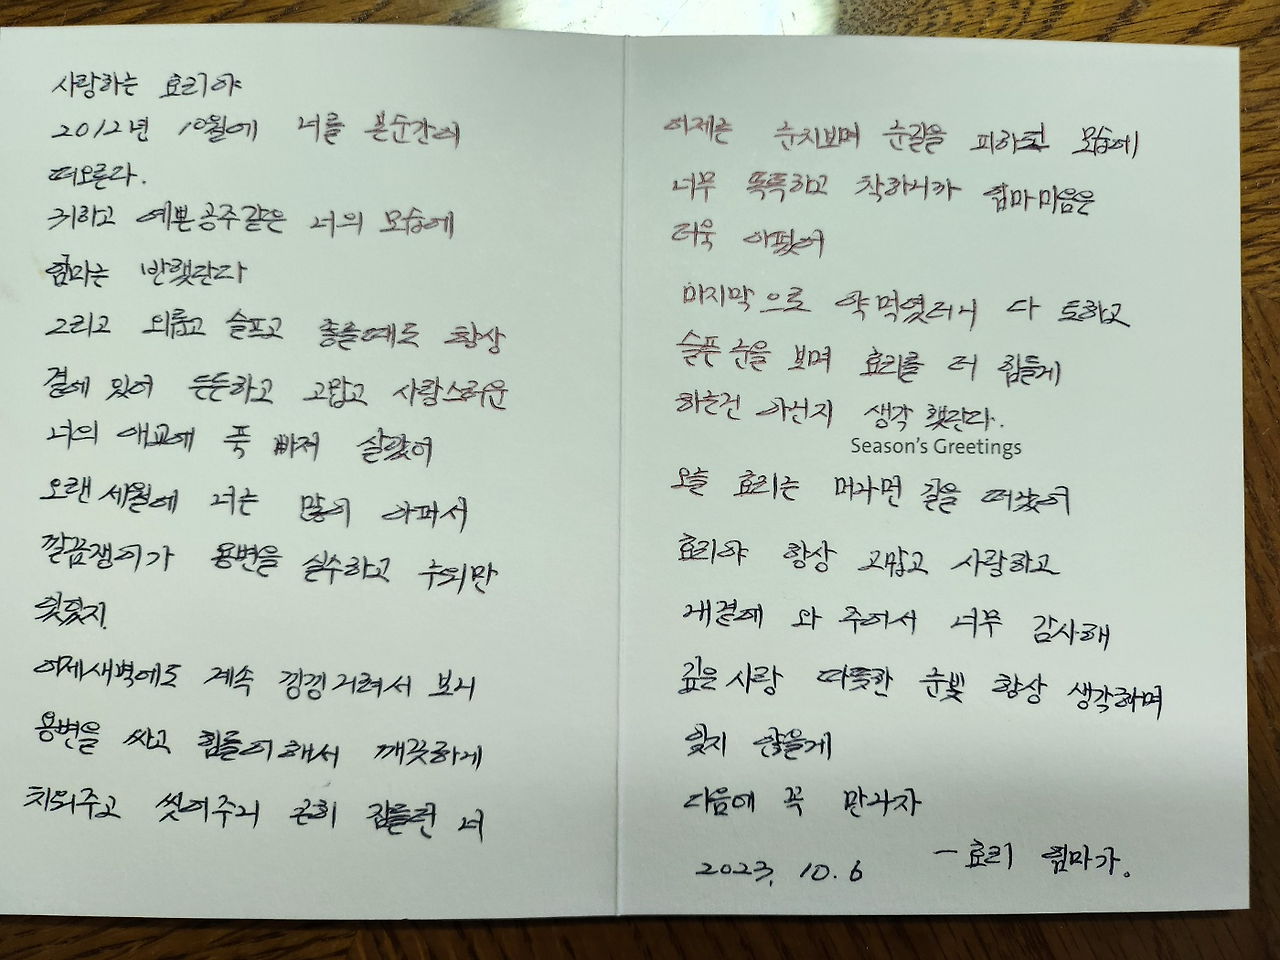 사랑하는 효리야
2012년 10월에 너를 본순간이
떠오른다.
귀하고 예쁜공주같은 너의 모습에
힘마는 반했단다
그리고 외롭고 슬프고 좋을때도 항상
곁에 있어 든든하고 고맙고 사랑스러운
너의 애교에 푹 빠져 살았어
오랜 세월에 너는 많이 아퍼서
깔끔쟁이가 용변을 실수하고
어제새벽에도 계속 낑낑거려서 보니
용변을 싸고 힘들어해서 깨끗하게
치워주고 씻어주니 곤히 잠들런 너
어제는 눈치보며 눈길을 피하던 모습에
너무 똑똑하고 착하니까 힘마마음은
더욱 아펐어
마지막으로 약먹였더니 다 토하고
슬픈눈을 보며 효리를 더 힘들게
하는건 아닌지 생각했단다.
Season's Greetings
오늘 효리는 머나먼 길을 떠났어
효리야 항상 고맙고 사랑하고
내곁에 와 주어서 너무 감사해
깊은사랑 따뜻한 눈빛 항상 생각하며
잊지 않을게
다음에 꼭 만나자
2023. 10. 6 - 효리 힘마가.